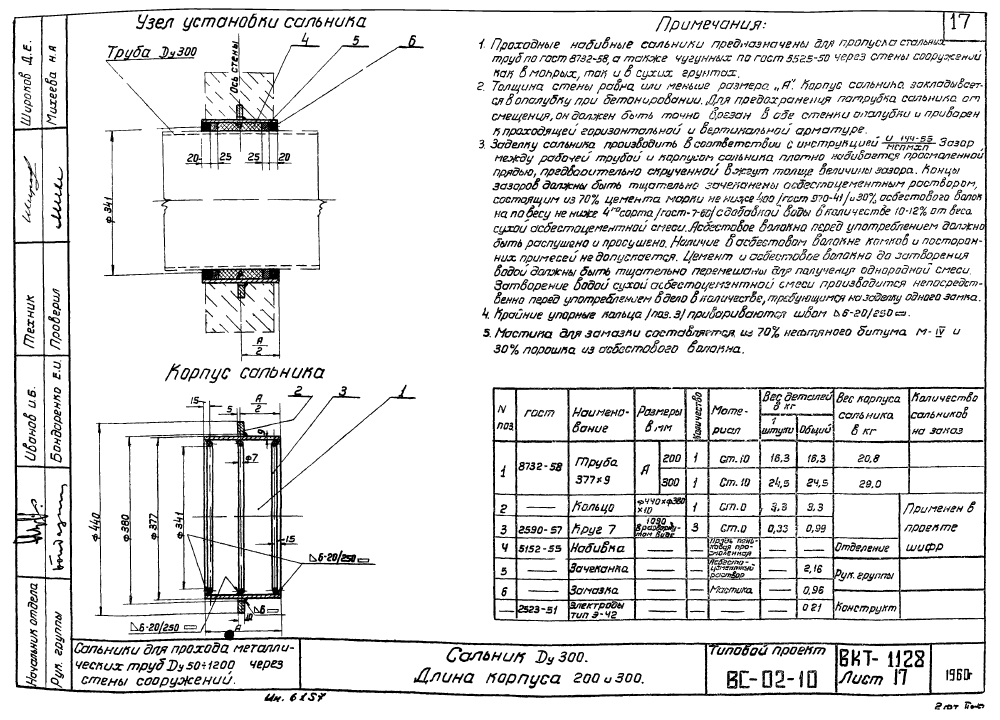 Узел установки сальника
Труба Dу300
Ось стены
4
5
6
20
25
25
20
ф341
A
2
Корпус сальника
2
3
1
15
5
A
2
9
ф7
ф440
ф380
ф377
ф341
15
6-20/250
6
6-20/250
A
Примечания:
17
1. Проходные набивные сальники предназначены для пропуска стальных
труб по гост 8732-58, а также чугунных по гост 5525-50 через стены сооружений
как в мокрых, так и в сухих грунтах.
2. Толщина стены равна или меньше размера „А". Корпус сальника закладывает-
ся в опалубку при бетонировании. Для предохранения патрубка сальника от
смещения, он должен быть точно врезан в обе стенки опалубки и приварен
к проходящей горизонтальной и вертикальной арматуре.
3. Заделку сальника производить в соответствии с инструкцией И 144-55 / МСПМХП Зазор
между рабочей трубой и корпусом сальника плотно набивается просмоленной
прядью, предварительно скрученной в жгут толще величины зазора. Концы
зазоров должны быть тщательно зачеканены асбестоцементным раствором,
состоящим из 70% цемента марки не ниже 400 /гост 970-41/ и 30% асбестового волок
на по весу не ниже 4го сорта /гост-7-60/ с добавкой воды в количестве 10-12% от веса
сухой асбестоцементной смеси. Асбестовое волокно перед употреблением должно
быть распушено и просушено. Наличие в асбестовом волокне комков и посторон-
них примесей не допускается. Цемент и асбестовое волокно до затворения
водой должны быть тщательно перемешаны для получения однородной смеси.
Затворение водой сухой асбестоцементной смеси производится непосредст-
венно перед употреблением в дело в количестве, требующимся на заделку одного замка.
4. Крайние упорные кольца /поз. 3/ привариваются швом 6-20/250
5. Мастика для замазки составляется из 70% нефтяного битума М-IV и
30% порошка из асбестового волокна.
N поз. гост Наимено-вание Размеры в мм Количество Мате-риал Вес деталей в кг 1 штуки Общий Вес корпуса сальника в кг Количество сальников на заказ
1 8732-58 Труба 377×9 A 200 1 Ст. 10 16,3 16,3 20,8
300 1 Ст. 10 24,5 24,5 29,0
2 — Кольцо ф440×ф380 ×10 1 Ст. 0 3,3 3,3 Применен в
3 2590-57 Круг 7 1090 в развернутом виде 3 Ст. 0 0,33 0,99 проекте
4 5152-55 Набивка — — Прядь пеньковая просмоленная — — Отделение шифр
5 — Зачеканка — — Асбестоцементный раствор — 2,16 Рук. группы
6 — Замазка — — Мастика — 0,96
— 2523-51 Электроды тип Э-42 — — — — 0 21 Конструкт
Сальники для прохода металли-
ческих труб Dу 50÷1200 через
стены сооружений.
Сальник Dу 300.
Длина корпуса 200 и 300.
Типовой проект
ВС-02-10
ВКТ-1128
Лист 17
1960г
Ин. 6157
Широков Д.Е.
Михеева Н.А
Техник
Проверил
Иванов И.Б.
Бондаренко Е.И.
Начальник отдела
Рук. группы